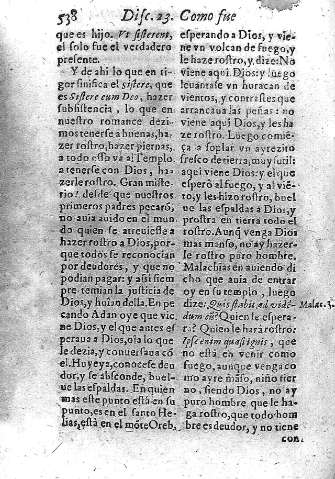 538 Disc. 23. Como fue
que es hijo. Ut sisterent,
el solo fue el verdadero
presente.
Y de ahi lo que en ri-
gor sinifica el sistere, que
es Sistere cum Deo, hazer
subsistencia, lo que en
nuestro romance dezi-
mos tenerse a buenas, haz
er rostro, hazer piernas,
a todo esta va al Templo
a tenerse con Dios, ha-
zerle rostro. Gran miste-
rio! desde que nuestros
primeros padres pecarō,
no auia auido en el mun
do quien se atreuiesse a
hazer rostro a Dios, por-
que todos se reconocian
por deudores, y que no
podian pagar: y assi siem
pre temian la justicia de
Dios, y huian della. En pe
cando Adan oye que vie
ne Dios, y el que antes es
peraua a Dios, oia lo que
le dezia, y conuersaua cō
el. Huye ya, conocese deu
dor, y se absconde, buel-
ue las espaldas. En quien
mas este punto està en su
punto, es en el santo He-
lias, està en el mōte Oreb,
esperando a Dios, y vie-
ne vn volcan de fuego, y
le haze rostro, y dize: No
viene aqui Dios: y luego
leuantase vn huracan de
vientos, y contrastes que
arrancaua las peñas: no
viene aqui Dios, y les ha
ze rostro. Luego comiē-
ça a soplar vn ayrezito
fresco de tierra, muy sutil:
aqui viene Dios: y el que
esperò al fuego, y al viē-
to, y les hizo rostro, buel
ue las espaldas a Dios, y
prostra en tierra todo el
rostro. Aunq̄ venga Dios
mas manso, no ay hazer-
le rostro puro hombre.
Malachias en auiendo di
cho, que auia de entrar
oy en su templo, luego
dize: Quis stabit ad vidē-
dum eū? Quien le espera-
ra? Quien le harà rostro?
Ipse enim quasi ignis, que
no està en venir como
fuego, aunque venga co
mo ayre māso, niño tier
no, siendo Dios, no ay
puro hombre que le ha-
ga rostro, que todo hom
bre es deudor, y no tiene
con-
Malac. 3.